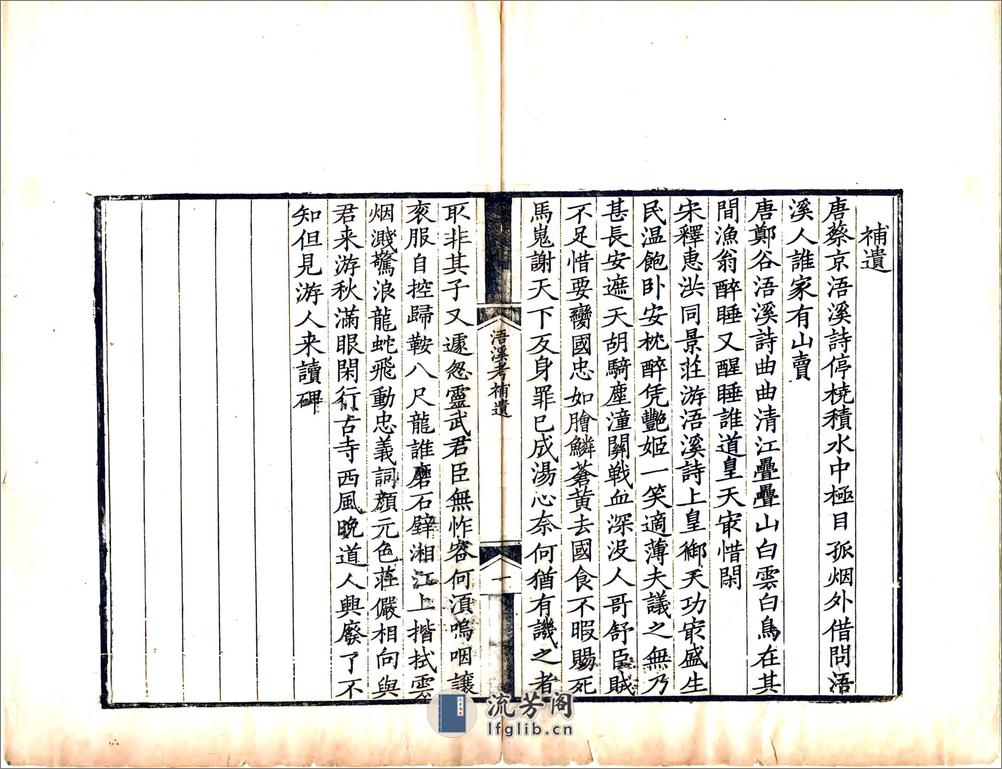 補遺
唐蔡京浯溪詩停橈積水中極目孤烟外借問浯
溪人誰家有山賣
唐鄭谷浯溪詩曲曲清江疊疊山白雲白鳥在其
間漁翁醉睡又醒睡誰道皇天㝡惜閑
宋釋惠洪同景莊游浯溪詩上皇御天功㝡盛生
民温飽卧安枕醉凭艷姬一笑適薄夫議之無乃
甚長安遮天胡騎塵潼關戰血深没人哥舒臣賊
不足惜要臠國忠如膾鱗蒼黄去國食不暇賜死
馬嵬謝天下反身罪已成湯心奈何猶有譏之者
浯溪考補遺
一
取非其子又遽怨靈武君臣無怍容何湏嗚咽讓
衮服自控歸鞍八尺龍誰磨石壁湘江上揩拭雲
烟濺驚浪龍蛇飛動忠義詞顔元色莊儼相向與
君来游秋滿眼閑行古寺西風晚道人興廢了不
知但見游人来讀碑
流芳阁
lfglib.cn